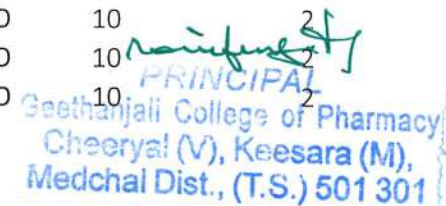 0 10 2
0 10 2
0 10 2
PRINCIPAL
Geethanjali College of Pharmacy
Cheeryal (V), Keesara (M),
Medchal Dist., (T.S.) 501 301